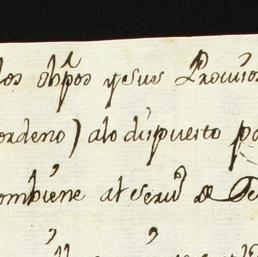 los obpos y sus Provisor
ordeno) alo dispuesto po
combiene al serv.º de